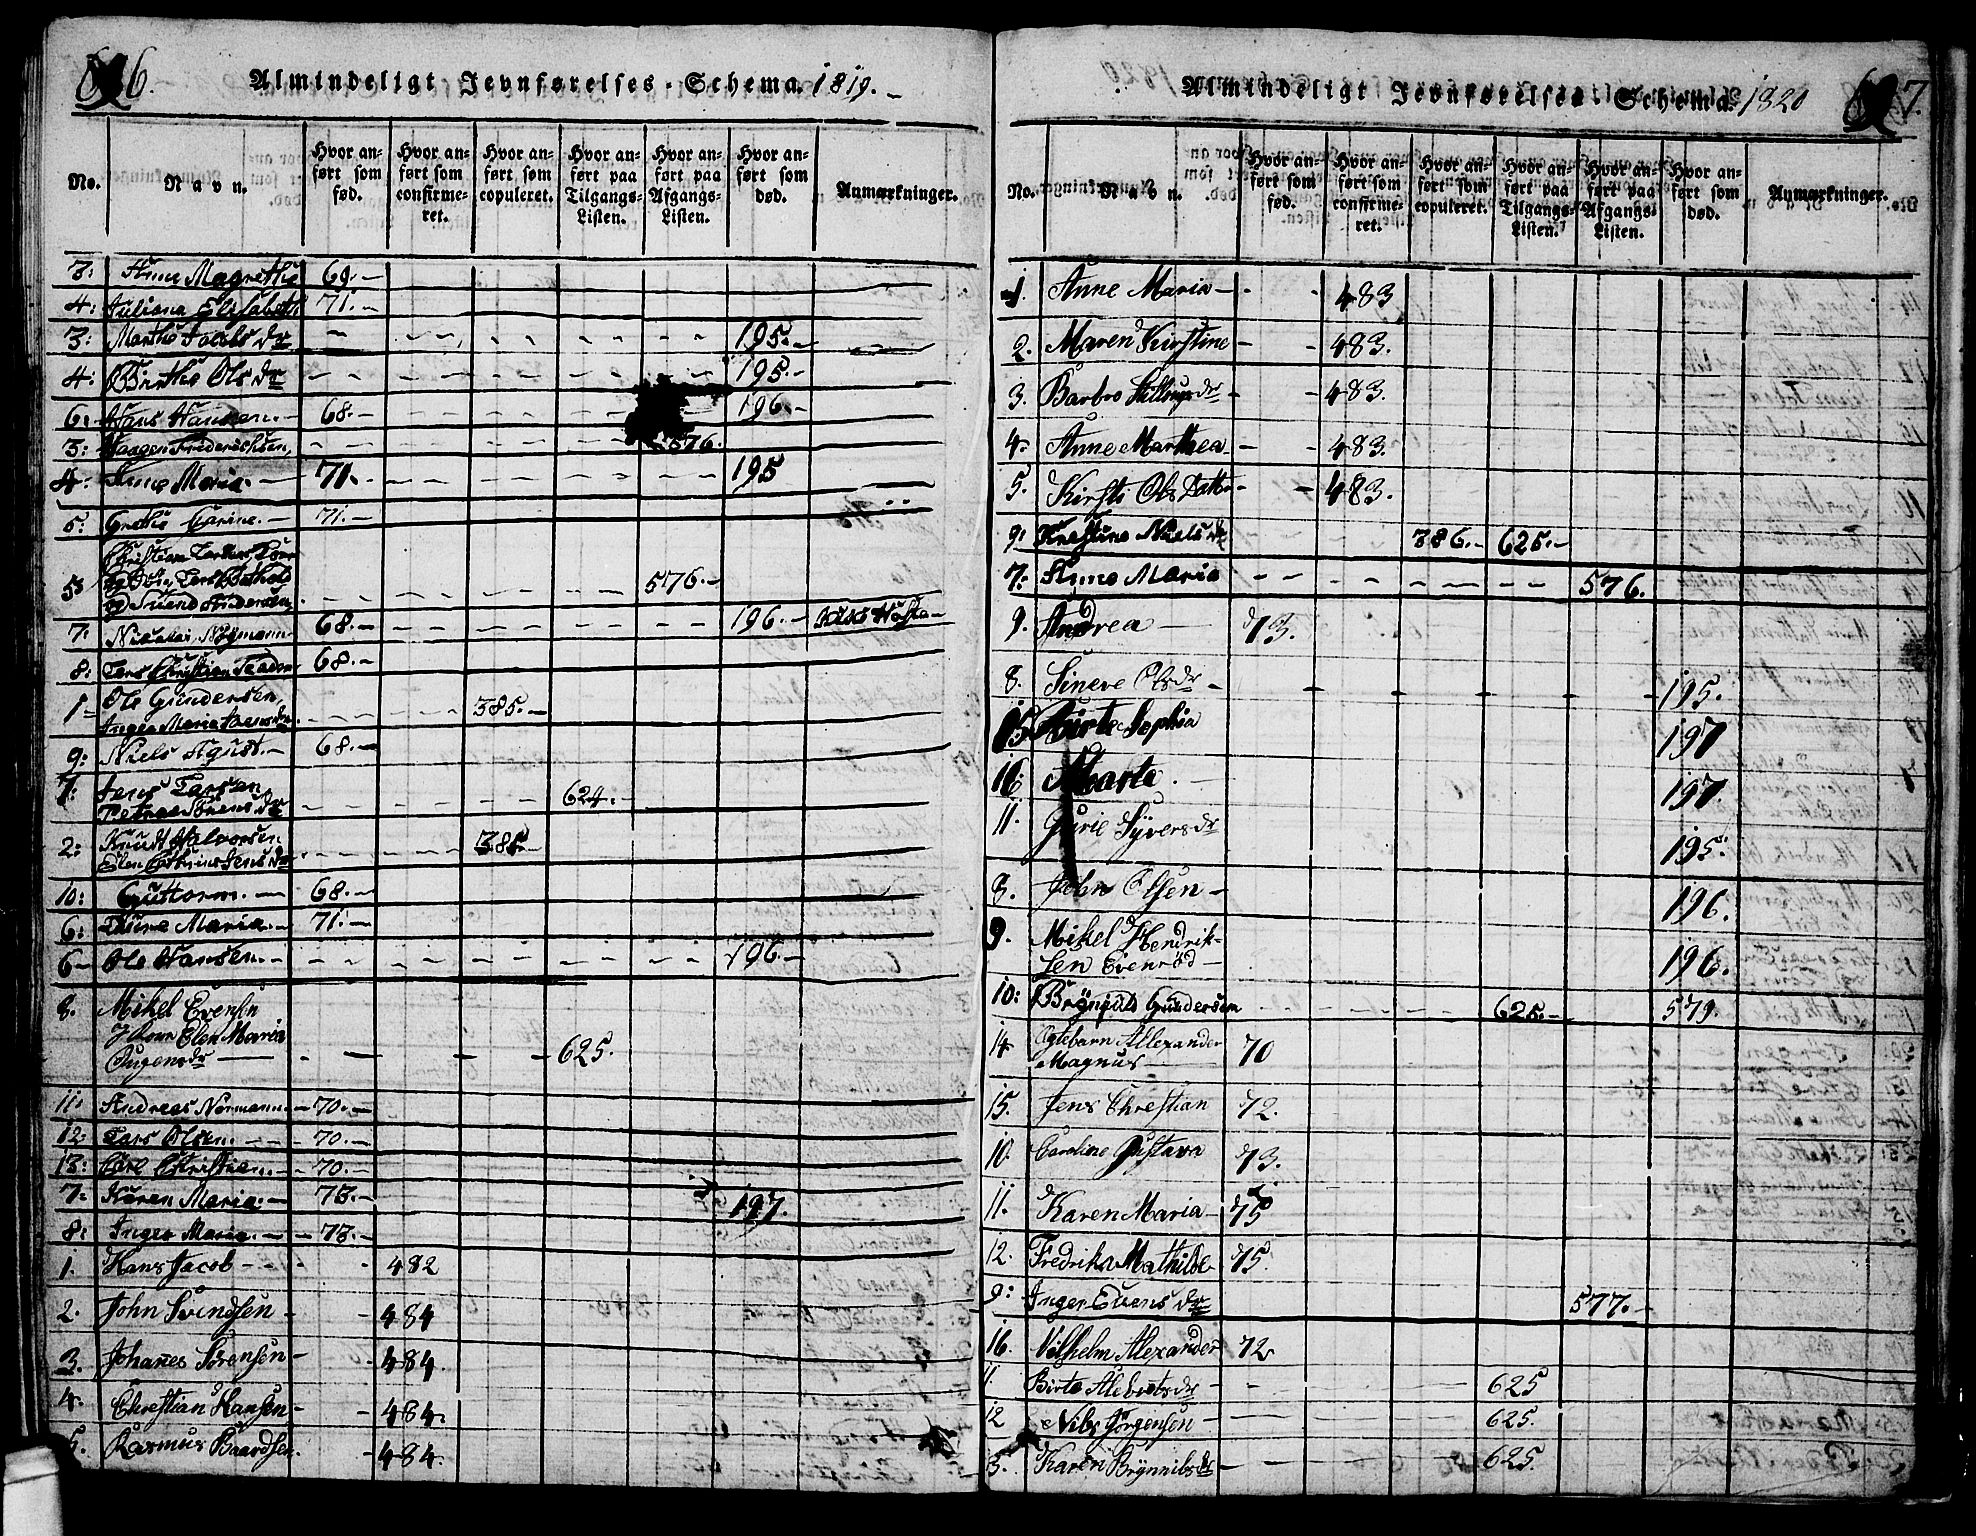 6 6.
Almindeligt Jevnførelses-Schema 1819.
No.
Navn.
Hvor anført som fød.
Hvor anført som confirmeret.
Hvor anført som copuleret.
Hvor anført paa Tilgangs-Listen.
Hvor anført paa Afgangs-Listen.
Hvor anført som død.
Anmærkninger.
3: Anne Magrethe 69.-
4: Juliana Elisabeth 71.-
3: Marthe Jacobs dr 195.-
4: Berthe Ols dr 195.-
6: Hans Hansen.- 68.- 196.-
3: Haagen Frederichsen 576.
4: Anne Maria.- 71.- 195
5: Grethe Carine.- 71.-
5 576.-
og Svend Andersen
7: Nicolai Normann 68.- 196.-
8: Lars Christian 68.-
1 Ole Gundersen
Inger Maria 385.-
9: Niels Agust.- 68.-
7: Jens Larsen
624.-
2: Knudt Halvorsen
Elen Cathrine Jens dr 385.-
10: Guttorm.- 68.-
6: Maria.- 71.-
6- Ole Hansen.- 196.-
8. Mikel Evensen
Kone Elen Maria
625.
11: Andreas Normann.- 70.-
12: Lars Olsen.- 70.-
13: Carl Christian.- 70.-
7: Karen Maria.- 73.- 197.
8: Inger Maria.- 73.-
1. Hans Jacob- 482
2. John Svendsen- 484
3. Johanes Sørensen- 484.
4. Christian Hansen- 484.
5. Rasmus Baardsen. 484.
Almindeligt Jevnførelses-Schema 1820
6 7.
No.
Navn.
Hvor anført som fød.
Hvor anført som confirmeret.
Hvor anført som copuleret.
Hvor anført paa Tilgangs-Listen.
Hvor anført paa Afgangs-Listen.
Hvor anført som død.
Anmærkninger.
1. Anne Maria- 483
2. Maren Kirstine- 483.
3. Barbro dr- 483.
4. Anne Marthea- 483.
5. Kirsti Ols Datter- 483.
9. Kirstine Niels dr 386.- 625.-
7: Anne Maria 576.
9. Andrea- 73.
8. Sineve Ols dr- 195.
15. Birte Sophia 197
16. Marta. 197.
11. Gurie Syvers dr 195.
8. John Olsen- 196.
9. Mikel Hendrik-
sen Evenrød- 196.
10: Brynild Gundersen 625.- 579.
14 Ægtebarn Allexander
Magnus 70
15. Jens Christian 72.
10. Caroline Gustava 73.
11. Karen Maria- 75
12. Fredrika Mathilde- 75.
9: Inger Evens dr 577.-
16. Vilhelm Alexander 72
11 Birte 625
12 Niels Jørgensen- 625.
5. Karen 625.